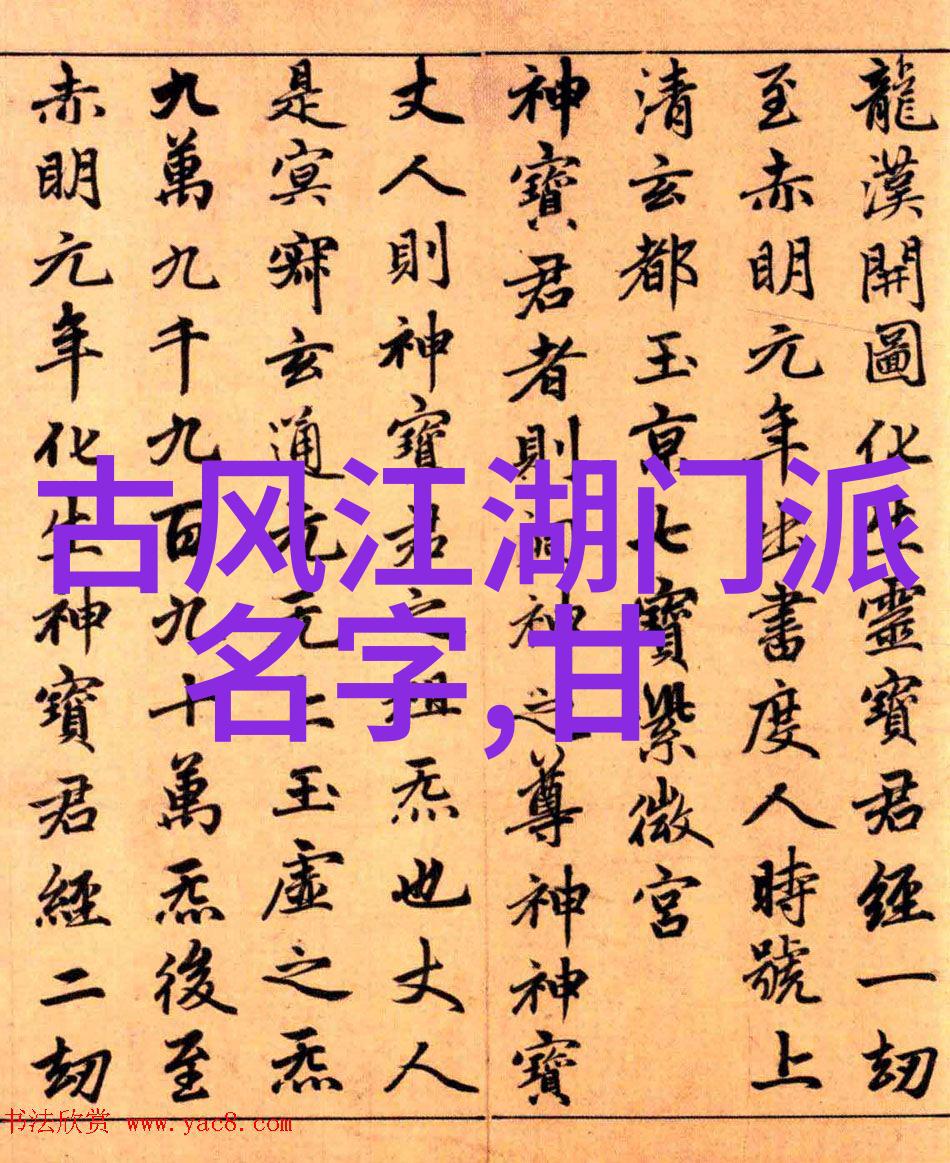 龍漢開圖化生靈寶君經一劫
至赤明元年出書度人時號上
清玄都玉京七寶紫微宮
神寶君者則洞神之尊神神寶
丈人則神寶君之祖炁也丈人
是冥寂玄通元无上玉虛之炁
九萬九千九百九十萬炁後至
赤明元年化生神寶君經二劫
古风江湖门派
名字,甘
书法欣赏 www.yac8.com